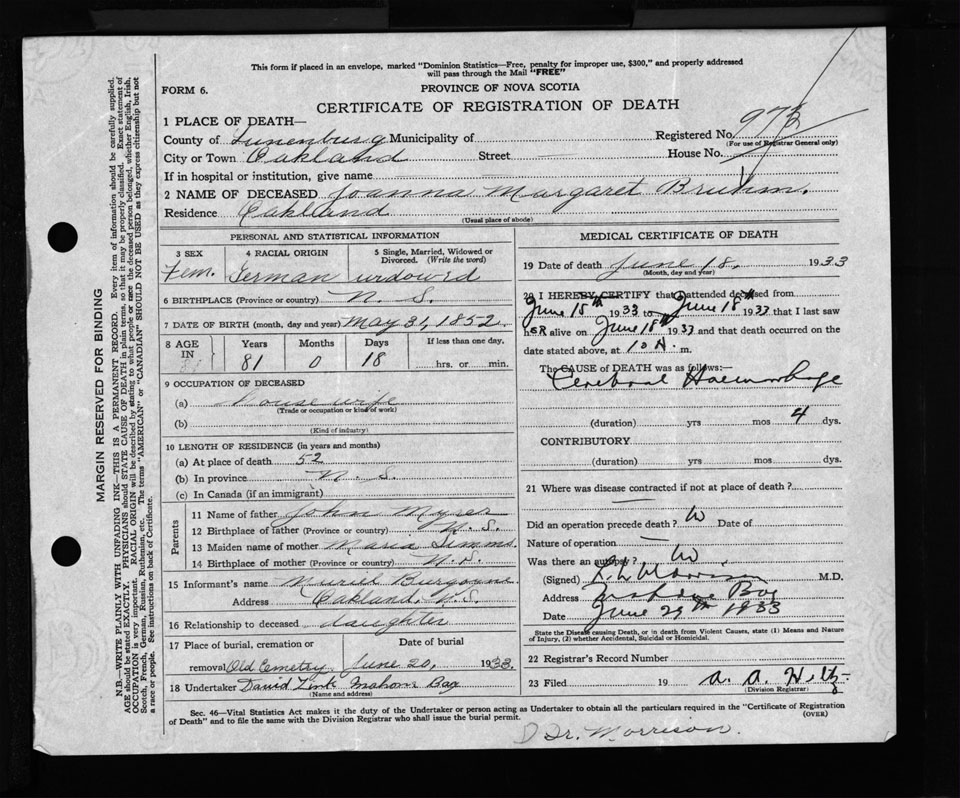 This form if placed in an envelope, marked "Dominion Statistics—Free, penalty for improper use, $300," and properly addressed
will pass through the Mail "FREE"
FORM 6.
PROVINCE OF NOVA SCOTIA
CERTIFICATE OF REGISTRATION OF DEATH
1 PLACE OF DEATH—
County of Lunenburg Municipality of Registered No.
(For use of Registrar General only)
City or Town Oakland Street — House No.
If in hospital or institution, give name
2 NAME OF DECEASED Joanna Margaret Bruhm.
Residence Oakland
(Usual place of abode)
PERSONAL AND STATISTICAL INFORMATION
3 SEX
Fem.
4 RACIAL ORIGIN
German
5 Single, Married, Widowed or
Divorced. (Write the word)
widowed
6 BIRTHPLACE (Province or country) N. S.
7 DATE OF BIRTH (month, day and year) May 31, 1852.
8 AGE
IN
Years
81
Months
0
Days
18
If less than one day,
hrs. or min.
9 OCCUPATION OF DECEASED
(a) Housewife
(Trade or occupation or kind of work)
(b)
(Kind of industry)
10 LENGTH OF RESIDENCE (in years and months)
(a) At place of death 52
(b) In province N. S.
(c) In Canada (if an immigrant)
Parents
11 Name of father John Myres
12 Birthplace of father (Province or country) N. S.
13 Maiden name of mother Maria Simms.
14 Birthplace of mother (Province or country) N. S.
15 Informant's name Muriel Burgoyne
Address Oakland, N. S.
16 Relationship to deceased daughter
17 Place of burial, cremation or Date of burial
removal Old Cemetry June 20, 1933.
18 Undertaker David Zink Mahone Bay
(Name and address)
MEDICAL CERTIFICATE OF DEATH
19 Date of death June 18, 1933
(Month, day and year)
20 I HEREBY CERTIFY that I attended deceased from
June 15th 1933 to June 18th 1933 that I last saw
her alive on June 18th 1933 and that death occurred on the
date stated above, at 10 A. m.
The CAUSE of DEATH was as follows:—
Cerebral Haemorhage
(duration) yrs mos 4 dys.
CONTRIBUTORY
(duration) yrs mos dys.
21 Where was disease contracted if not at place of death?
—
Did an operation precede death? Date of
Nature of operation —
Was there an autopsy?
(Signed) M.D.
Address Bay
Date June 29th 1933
State the Disease causing Death, or in death from Violent Causes, state (1) Means and Nature
of Injury, (2) whether Accidental, Suicidal or Homicidal.
22 Registrar's Record Number
23 Filed 19 A. A.
(Division Registrar)
Sec. 46—Vital Statistics Act makes it the duty of the Undertaker or person acting as Undertaker to obtain all the particulars required in the "Certificate of Registration
of Death" and to file the same with the Division Registrar who shall issue the burial permit. (OVER)
Dr. Morrison.
MARGIN RESERVED FOR BINDING
N.B.—WRITE PLAINLY WITH UNFADING INK—THIS IS A PERMANENT RECORD. Every item of information should be carefully supplied.
AGE should be stated EXACTLY. PHYSICIANS should STATE CAUSE OF DEATH in plain terms, so that it may be properly classified. Exact statement of
OCCUPATION is very important. RACIAL ORIGIN will be described by stating to what people or race the deceased person belonged, whether English, Irish,
Scotch, French, German, Russian, Ruthenian, etc. The terms "AMERICAN" or "CANADIAN" SHOULD NOT BE USED as they express citizenship but not
a race or people. See instructions on back of Certificate.